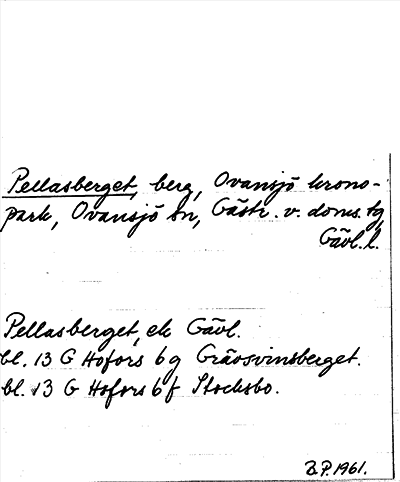 Pellasberget, berg, Ovansjö krono-
park, Ovansjö sn, Gästr. v. doms. tg,
Gävl. l.
Pellasberget, ek Gävl.
bl. 13 G Hofors 6 g Gråosvinsberget.
bl. 13 G Hofors 6 f Stocksbo.
B.P. 1961.